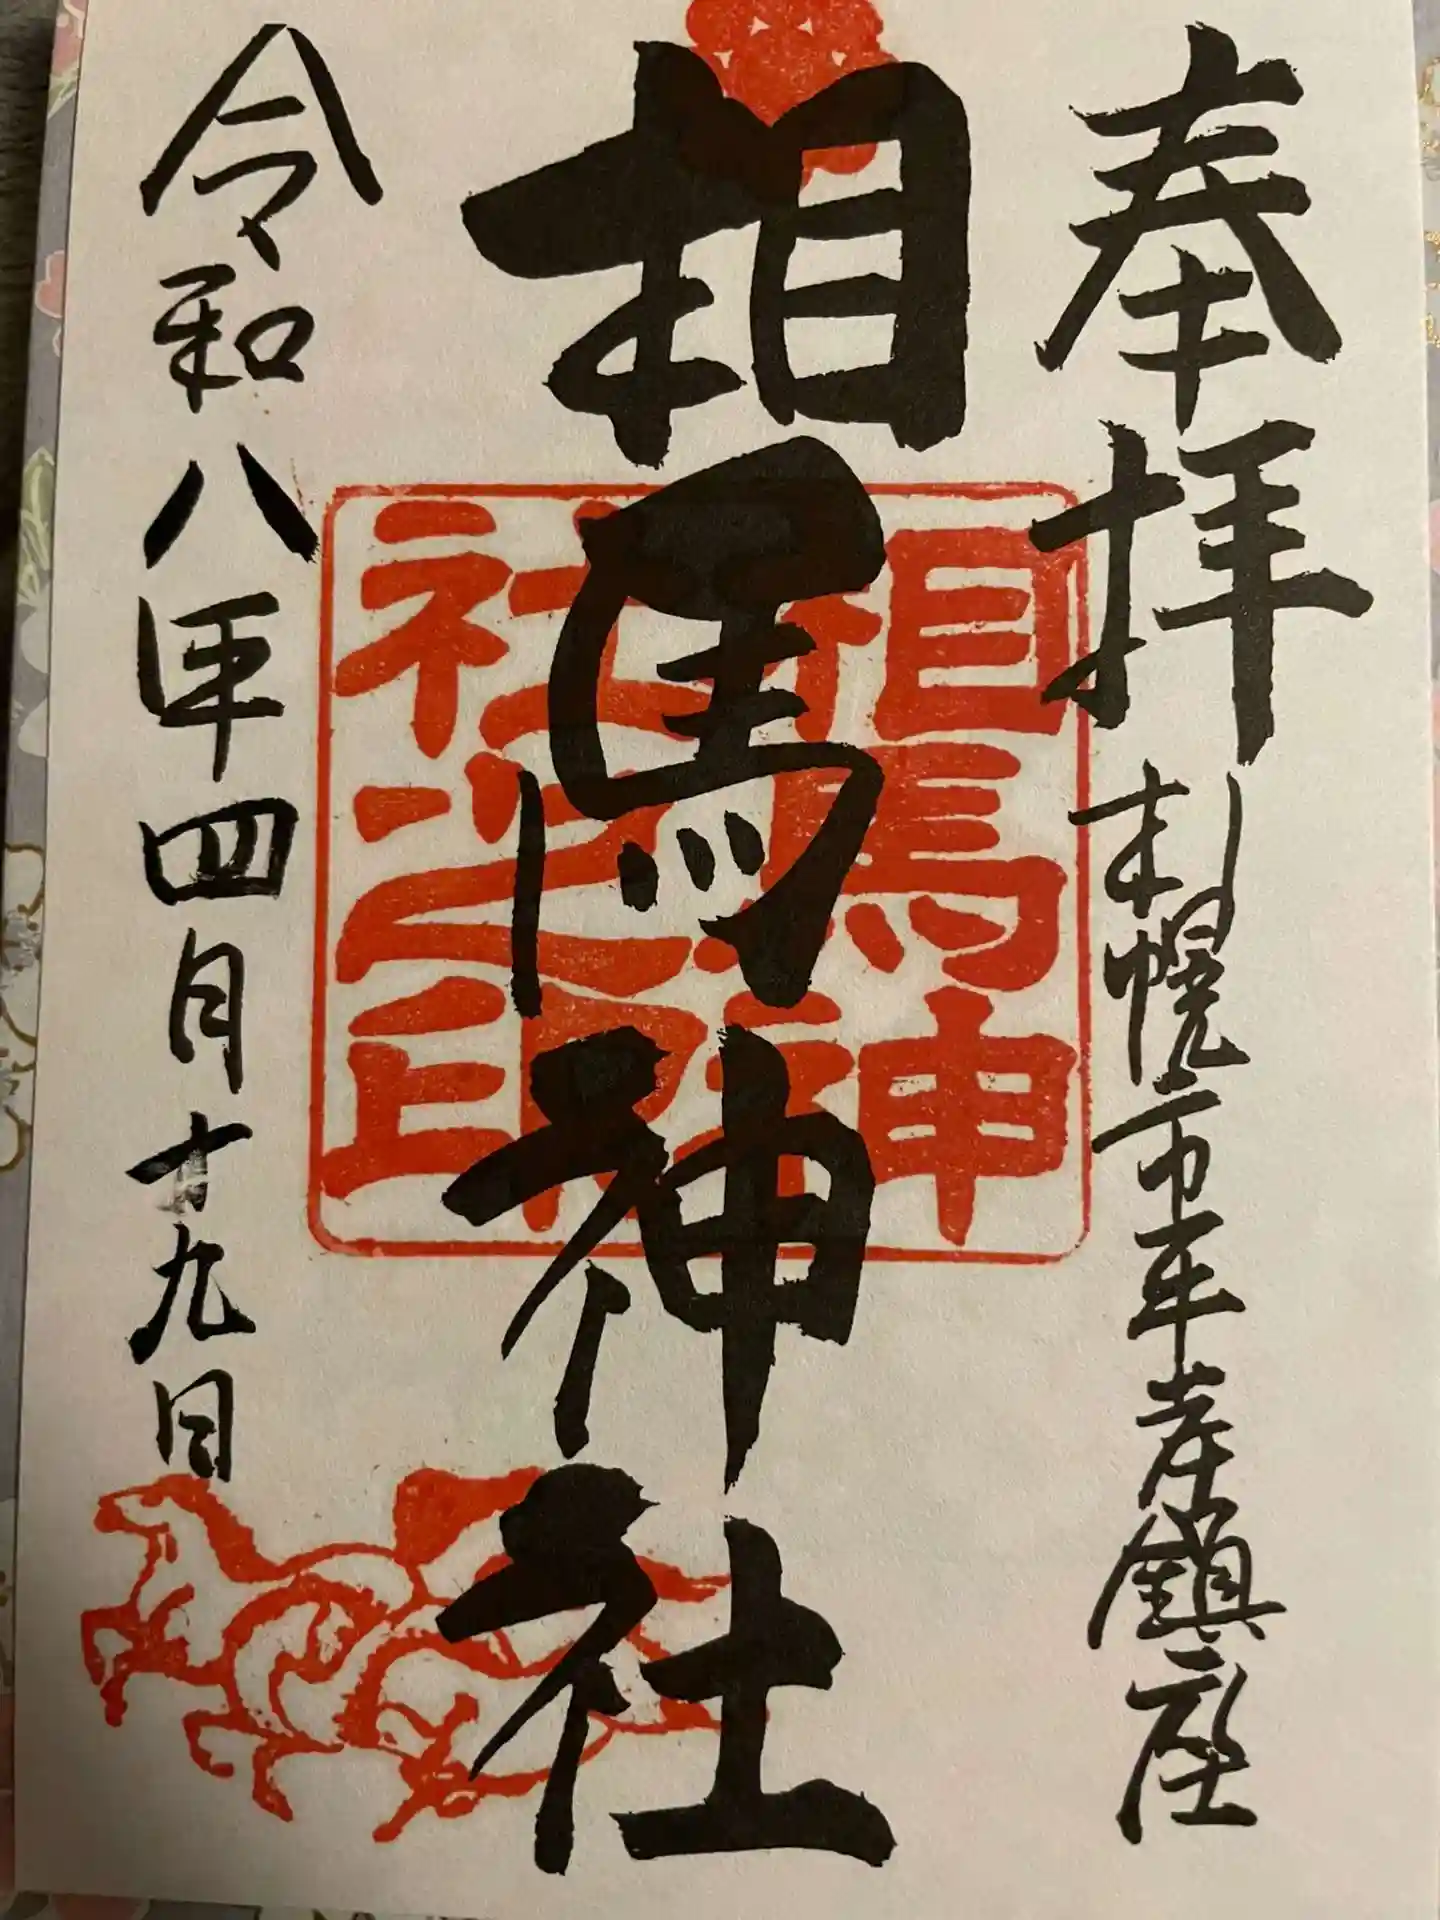 奉拝
札幌市平岸鎮座
相馬神社
相馬神社之印
令和八年四月十九日